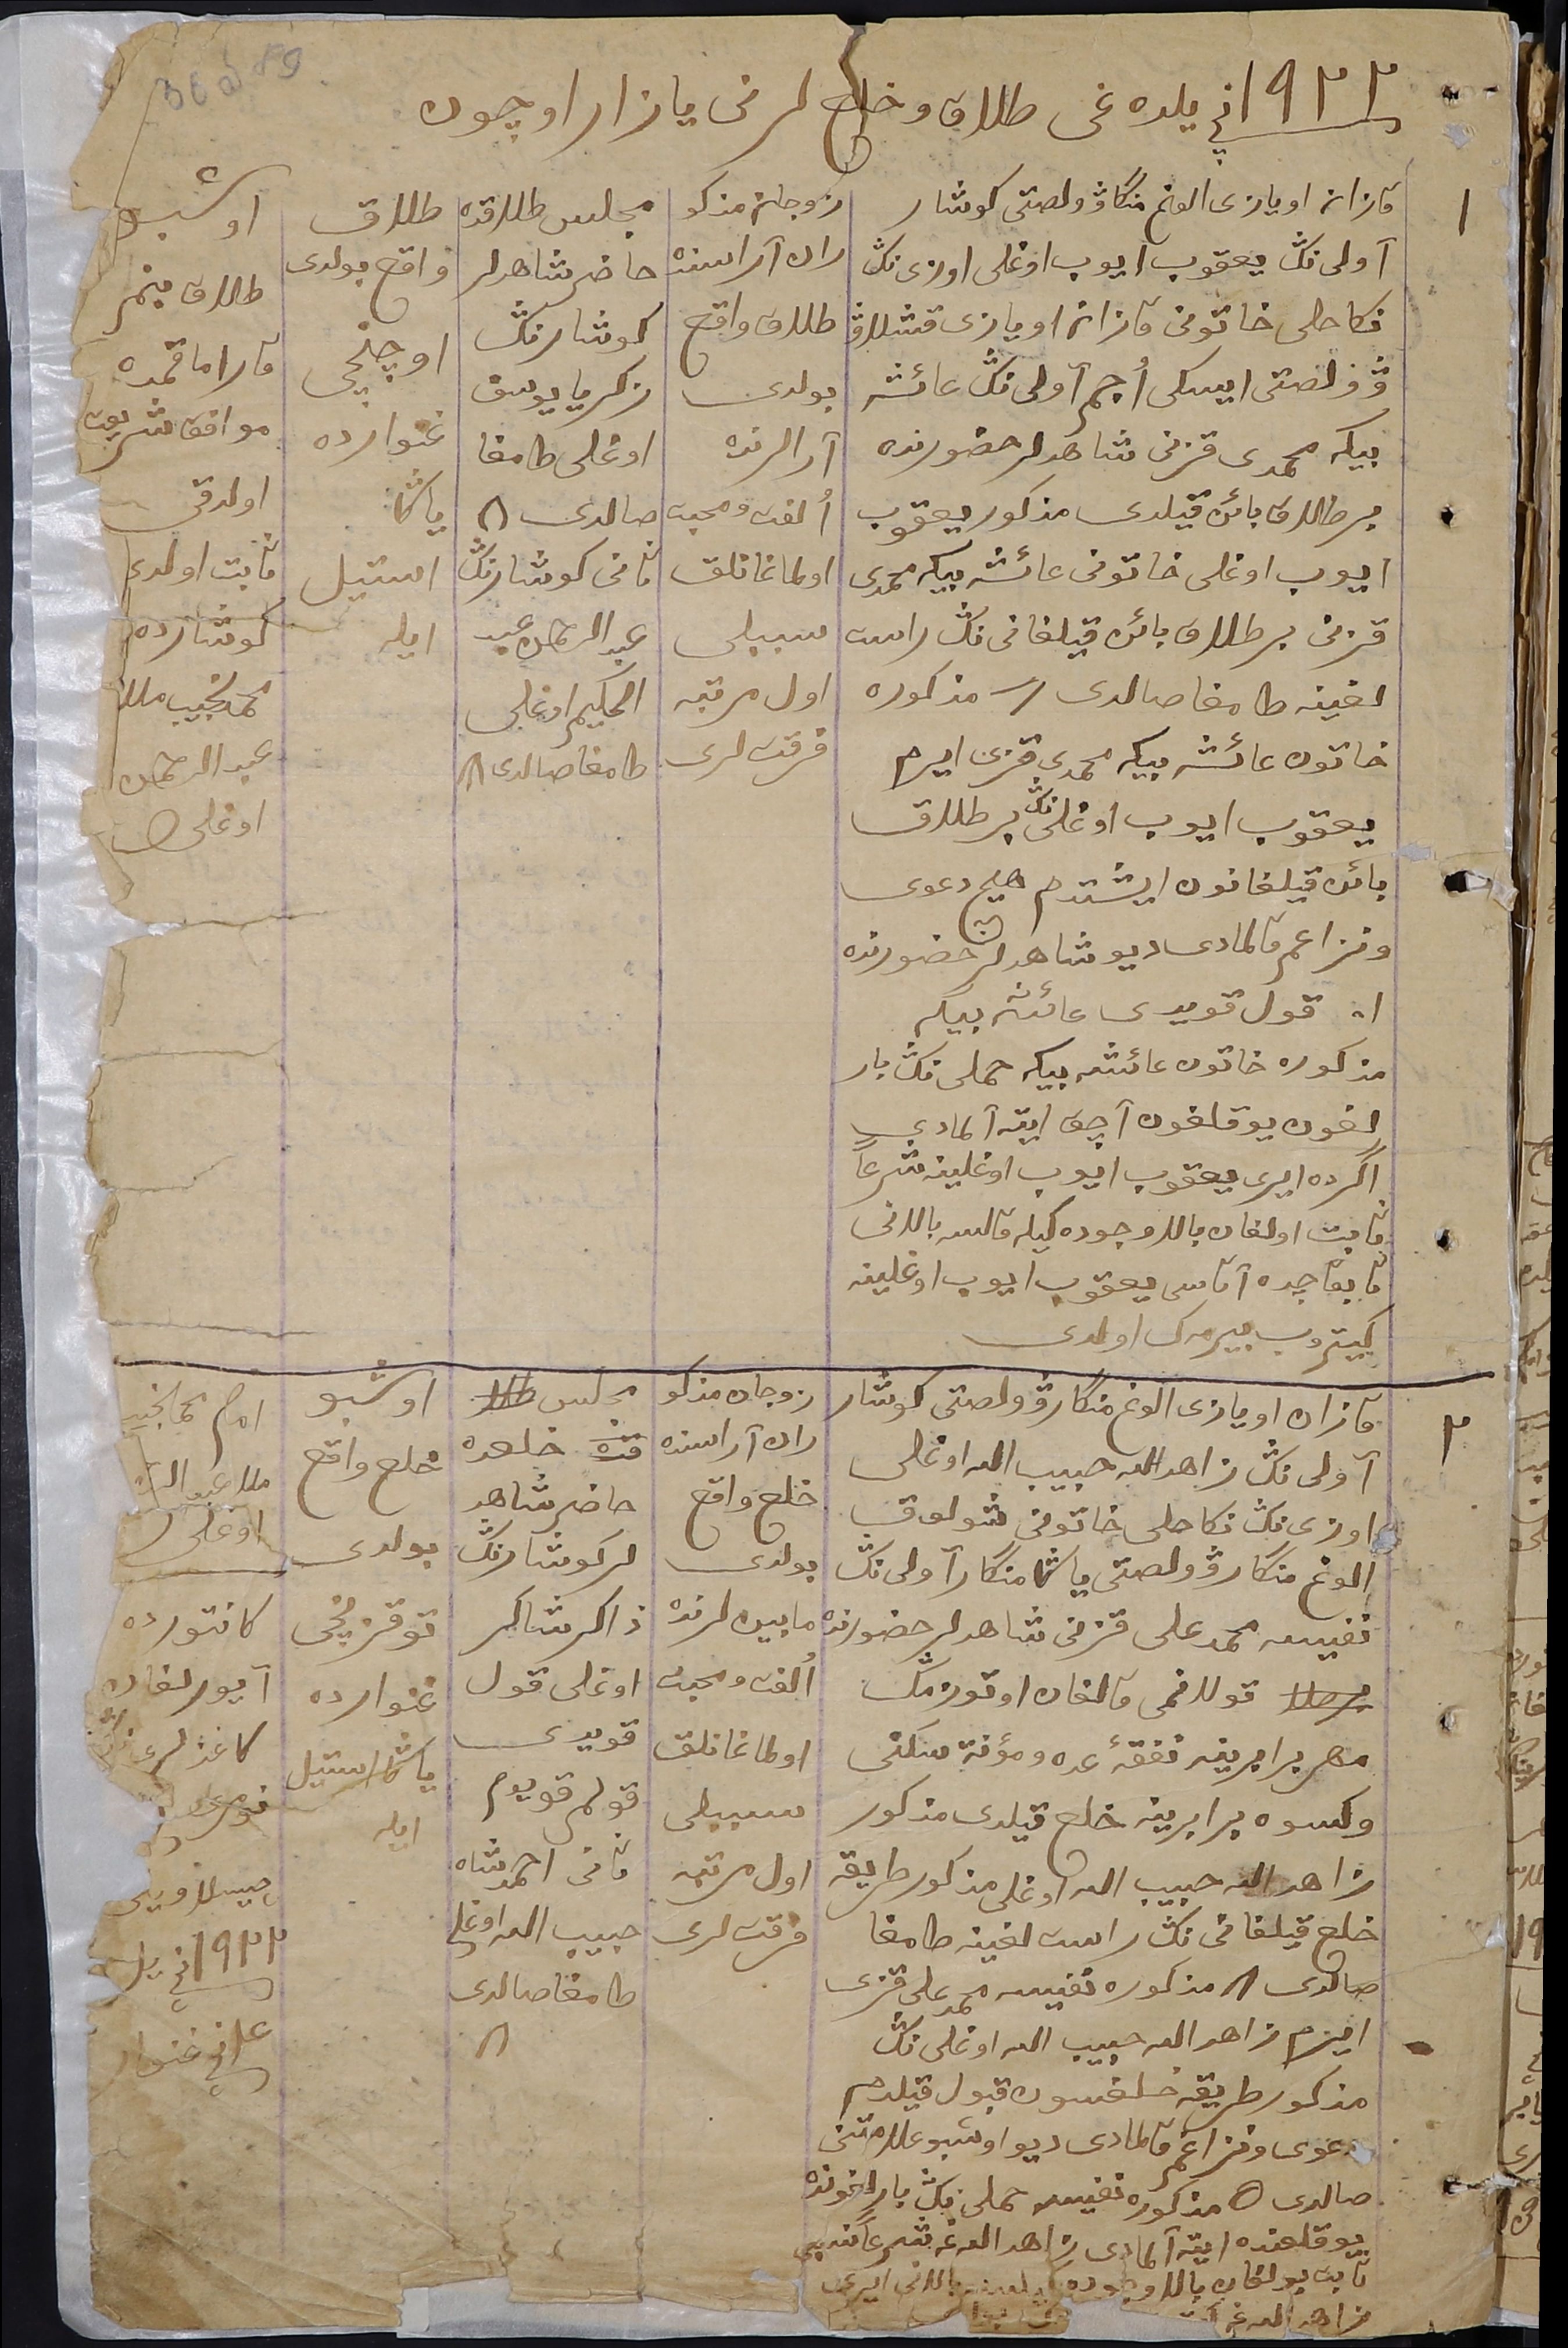 ١٩٢٢ نچی یلده غی طلاق و خلع لرنی یازار اوچون
١
قازان اویازی الوغ منگار ۋولصتی کوشار
آولی نڭ یعقوب ایوب اوغلی اوزی نڭ
نکاحلی خاتونی قازان اویازی قشلاو
ۋولصتی ایسکی اُجم آولی نڭ عائشه
بیکه محمدی قزنی شاهدلر حضورنده
بر طلاق بائن قیلدی مذکور یعقوب
ایوب اوغلی خاتونی عائشه بیکه محمدی
قزنی بر طلاق بائن قیلغانی نڭ راست
لغینه طامغا صالدی مذکوره
خاتون عائشه بیکه محمدی قزی ایرم
یعقوب ایوب اوغلی نڭ بر طلاق
بائن قیلغانون ایشتدم هیچ دعوی
ونزاعم قالمادی دیو شاهدلر حضورنده
قول قویدی عائشه بیکه
مذکوره خاتون عائشه بیکه حملی نڭ بار
لغون یوقلغون آچق ایته آلمادی
اگرده ایری یعقوب ایوب اوغلینه شرعاً
ثابت اولغان بالا وجوده کیله قالسه بالانی
تابقاچده آتاسی یعقوب ایوب اوغلینه
کیتروب بیرمک اولدی
زوجان مذکو
ران آراسنده
طلاق واقع
بولدی
آرالرنده
اُلفت و محبت
اولماغانلق
سببلی
اول مرتبه
فرقت لری
مجلس طلاقده
حاضر شاهدلر
کوشارنڭ
زکریا یوسف
اوغلی طامغا
صالدی ٨
ثانی کوشارنڭ
عبد الرحمن عبد
الحکیم اوغلی
طامغا صالدی ٨
طلاق
واقع بولدی
اوچنچی
غنوارده
یاڭا
استیل
ایله
اوشبو
طلاق بنم
قاراماقمده
موافق شریعت
اولدقی
ثابت اولدی
کوشارده
محمد نجیب ملا
عبد الرحمن
اوغلی
٢
قازان اویازی الوغ منگار ۋولصتی کوشار
آولی نڭ زاهد الله حبیب الله اوغلی
اوزی نڭ نکاحلی خاتونی شولوق
الوغ منگار ۋولصتی یاڭا منگار آولی نڭ
نفیسه محمد علی قزنی شاهدلر حضورنده
قوللانمی قالغان اوتوز مڭ
مهر برابرینه نفقهٔ عده و مؤنة سکنی
وکسوه برابرینه خلع قیلدی مذکور
زاهد الله حبیب الله اوغلی مذکور طریقه
خلع قیلغانی نڭ راست لغینه طامغا
صالدی ٨ مذکوره نفیسه محمد علی قزی
ایرم زاهد الله حبیب الله اوغلی نڭ
مذکور طریقه خلعسون قبول قیلدم
دعوی ونزاعم قالمادی دیو اوشبو علامتنی
صالدی مذکوره نفیسه حملی نڭ بارلغونده
یوقلغنده ایته آلمادی زاهد الله غه شرعاً
ثابت بولغان بالا وجوده
زاهد الله غه
زوجان مذکو
ران آراسنده
خلع واقع
بولدی
مابین لرنده
اُلفت و محبت
اولماغانلق
سببلی
اول مرتبه
فرقت لری
مجلس
خلعده
حاضر شاهد
لر کوشارنڭ
ذاکر شاکر
اوغلی قول
قویدی
قولم قویدم
ثانی احمد شاه
حبیب الله اوغلی
طامغا صالدی
٨
اوشبو
خلع واقع
بولدی
توقزنچی
غنوارده
یاڭا استیل
ایله
امام محمد نجیب
ملا عبد
اوغلی
کانتورده
آیورلغان
کاغذلری نڭ
نومری
١٩٢٢ نچی یل
غنوار